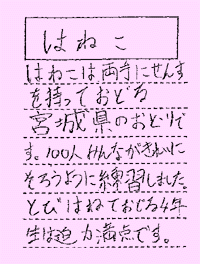 はねこ
はねこは両手にせんす
を持っておどる
宮城県のおどりで
す。100人みんながきれいに
そろうように練習しました。
とびはねておどる4年
生は迫力満点です。